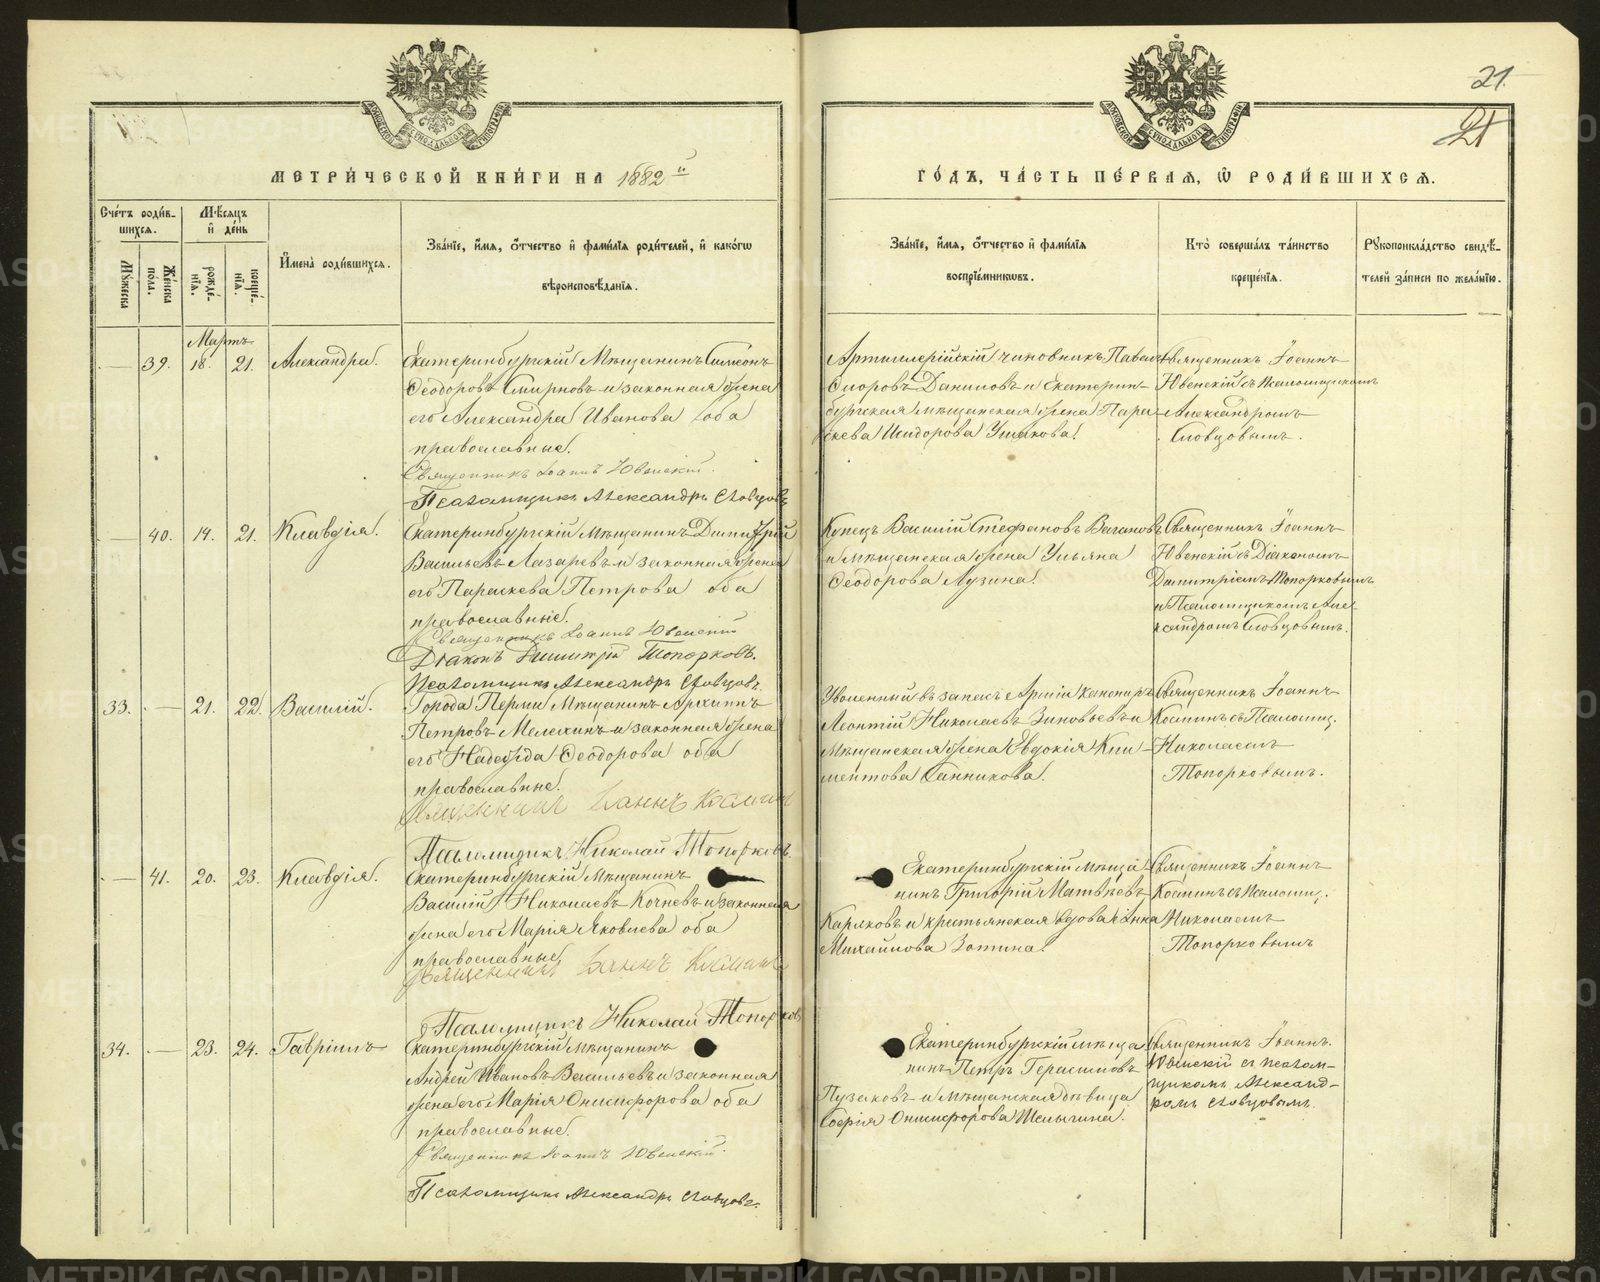 21.
21
МЕТРИ́ЧЕСКОЙ КНИ́ГИ НА 1882й
ГО́ДЪ, ЧА́СТЬ ПЕ́РВАЯ, Ѡ РОДИ́ВШИХСЯ.
Сче́тъ роди́в-
шихся.
Мѣ́сяцъ
и́ де́нь
Му́жеска
Же́нска
по́ла.
рожде́-
нїя.
креще́-
нїя.
И́мена̀ роди́вшихся.
Зва́нїе, и́мя, о́тчество и́ фами́лїя роди́телей, и́ како́гѡ
вѣроисповѣ́данїя.
Зва́нїе, и́мя, о́тчество и́ фами́лїя
воспрїе́мниковъ.
Кто̀ соверша́лъ та́инство
креще́нїя.
Рꙋкоприкла́дство свидѣ́-
телей за́писи по жела́нїю.
Мартъ
— 39. 18. 21. Александра.
Екатеринбургскій Мѣщанинъ Симеонъ
Ѳеодоровъ Смирновъ и законная жена
его Александра Иванова оба
православные.
Священникъ Іоаннъ Ювенскій.
Псаломщикъ Александръ Словцовъ
Артиллерійскій чиновникъ Павелъ
Сидоровъ Даниловъ и Екатерин-
бургская мѣщанская жена Пара-
скева Исидорова Ушакова.
Священникъ Іоаннъ
Ювенскій съ Псаломщикомъ
Александромъ
Словцовымъ.
— 40. 14. 21. Клавдія.
Екатеринбургскій Мѣщанинъ Димитрій
Васильевъ Лазаревъ и законная жена
его Параскева Петрова оба
православные.
Священникъ Іоаннъ Ювенскій
Діаконъ Димитрій Топорковъ.
Псаломщикъ Александръ Словцовъ.
Купецъ Василій Стефановъ Вагановъ
и мѣщанская жена Ульяна
Ѳеодорова Лузина.
Священникъ Іоаннъ
Ювенскій съ Діакономъ
Димитріемъ Топорковымъ
и Псаломщикомъ Але-
ксандромъ Словцовымъ.
33. — 21. 22. Василій.
Города Перми Мѣщанинъ Архиппъ
Петровъ Мелехинъ и законная жена
его Надежда Ѳеодорова оба
православные.
Священникъ Іоаннъ Косминъ
Псаломщикъ Николай Топорковъ.
Уволенный въ запасъ Арміи канониръ
Леонтій Николаевъ Зиновьевъ и
Мѣщанская жена Евдокія Кли-
ментова Санникова.
Священникъ Іоаннъ
Косминъ съ Псаломщ.
Николаемъ
Топорковымъ.
— 41. 20. 23. Клавдія.
Екатеринбургскій Мѣщанинъ
Василій Николаевъ Кочневъ и законная
жена его Марія Яковлева оба
православные.
Священникъ Іоаннъ Косминъ
Псаломщикъ Николай Топорковъ
Екатеринбургскій мѣща-
нинъ Григорій Матвѣевъ
Каряковъ и крестьянская вдова Анна
Михайлова Зотина.
Священникъ Іоаннъ
Косминъ съ Псаломщ.
Николаемъ
Топорковымъ
34. — 23. 24. Гавріилъ
Екатеринбургскій мѣщанинъ
Андрей Ивановъ Васильевъ и законная
жена его Марія Онисифорова оба
православные.
Священникъ Іоаннъ Ювенскій.
Псаломщикъ Александръ Словцовъ.
Екатеринбургскій мѣща-
нинъ Петръ Герасимовъ
Пузаковъ и мѣщанская дѣвица
Софія Онисифорова Шелыгина.
Священникъ Іоаннъ.
Ювенскій съ псалом-
щикомъ Александ-
ромъ Словцовымъ.
METRIKI.GASO-URAL.RU